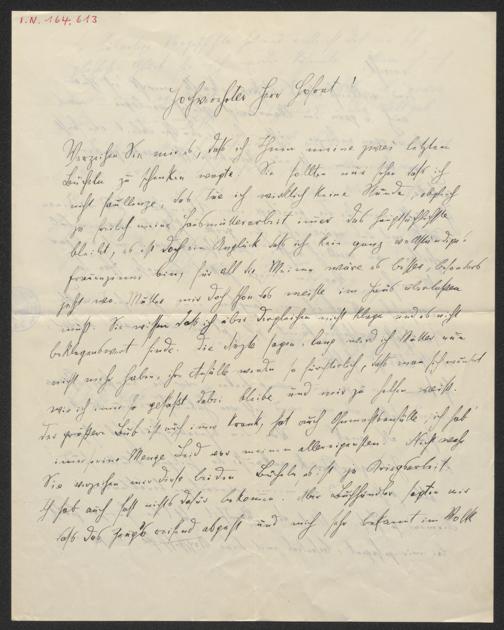 I.N. 164.613
Hochverehrter Herr Hofrat!
Verzeihen Sie mir es, daß ich Ihnen meine zwei letzten
Bücheln zu schenken wagte. Sie sollten nur sehen daß ich
nicht faullenze, das tue ich wirklich keine Stunde, obgleich
ja freilich meine Hausmütterarbeit immer das hauptsächlichste
bleibt, es ist doch ein Unglück daß ich kein ganz vollständiges
Frauenzimmer bin, für all die Meinen wäre es besser, besonders
jetzt wo Mutter mir doch schon das meiste im Haus überlassen
muß. Sie wissen daß ich über dergleichen nicht klage und es nicht
beklagenswert finde. Die Ärzte sagen, lang werd ich Mutter nun
nicht mehr haben, ihre Anfälle werden so fürchterlich, daß man sich wundert
wie ich immer so gefaßt dabei bleibe und mir zu helfen weiß.
Der größere Bub ist auch immer krank, hat auch Ohnmachtsanfälle, ich hab
immer eine Menge Leid vor meinen allereigensten. Nicht wahr
Sie verzeihen mir diese beiden Bücheln es ist ja Kriegsarbeit.
Ich hab auch fast nichts dafür bekommen. Aber Buchhändler sagten mir
daß das Zeugs reißend abgeht und mich sehr bekannt im Volk